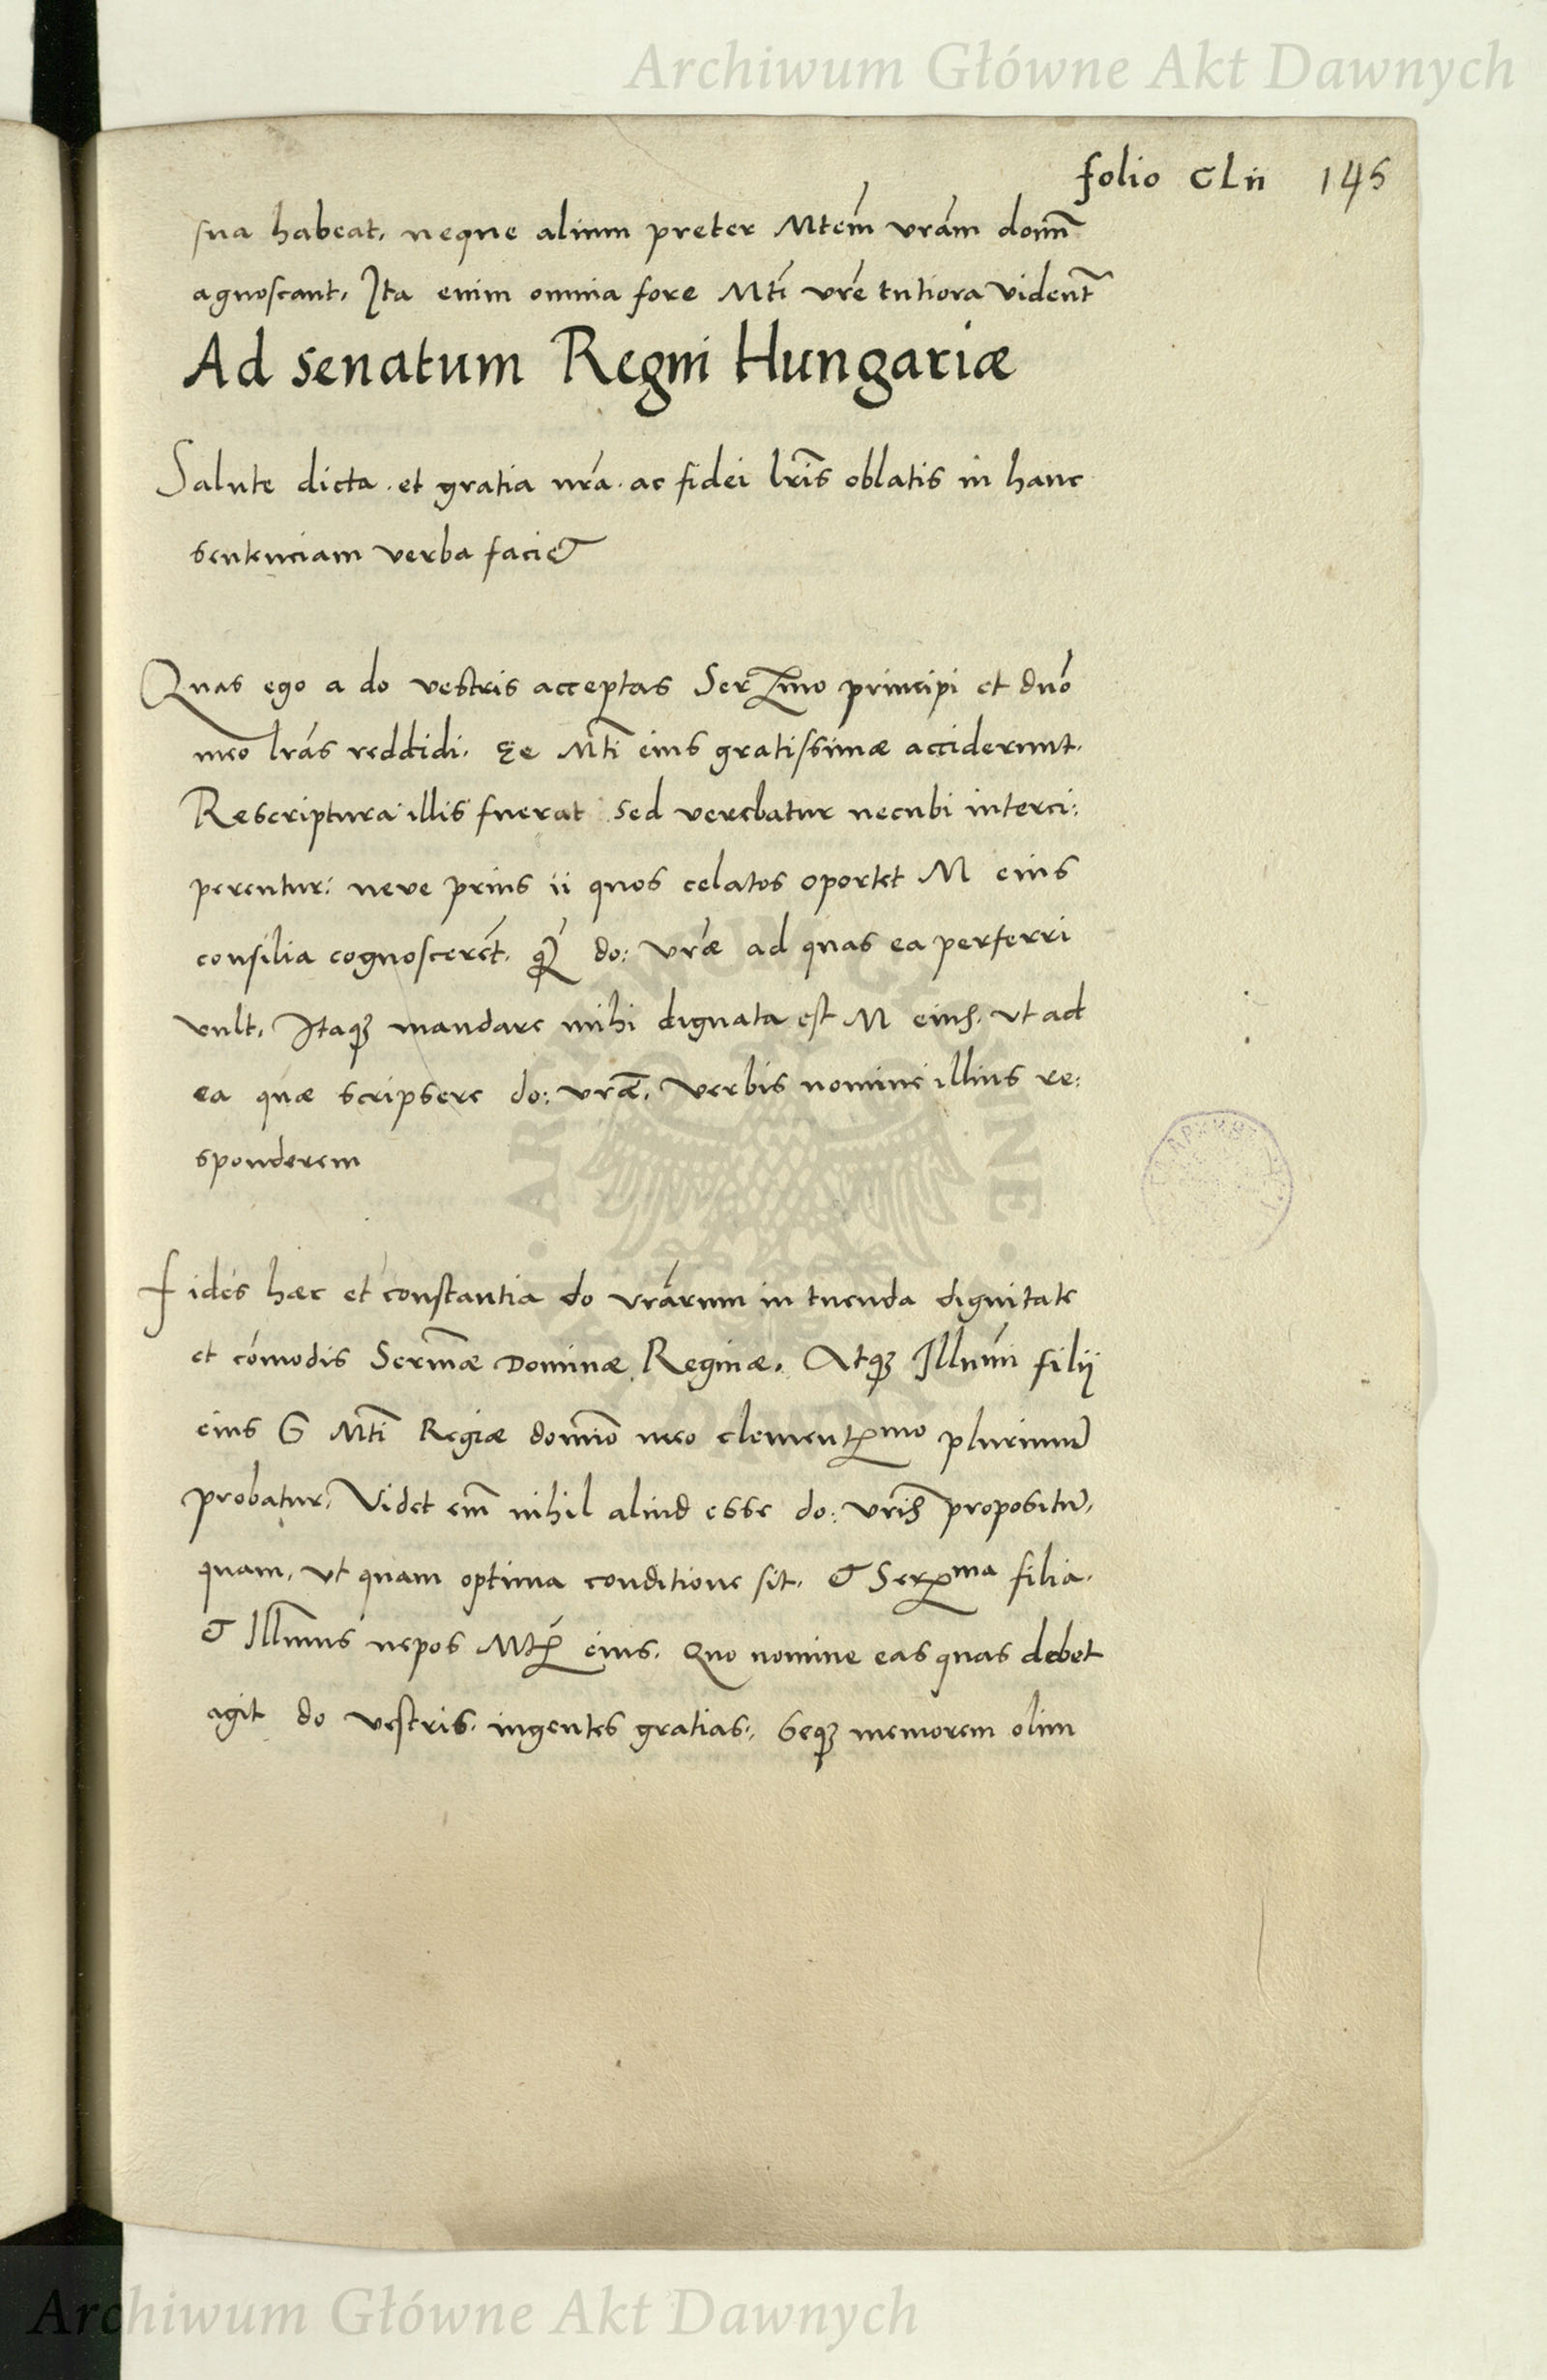 Archiwum Główne Akt Dawnych
folio CLii 145
sua habeat, neque alium preter Mtem vram domn
agnoscant, Ita enim omnia fore Mti vre tutiora vident
Ad senatum Regni Hungariæ
Salute dicta. et gratia nra. ac fidei lris oblatis in hanc
sentenciam verba faciet
Quas ego a do vestris acceptas Ser mo principi et dno
meo lras reddidi. Eę Mti eius gratissimæ acciderunt.
Rescriptura illis fuerat sed verebatur necubi interci:
perentur: neve prius ii quos celatos oportet M eius
consilia cognoscerent. do: vræ ad quas ea perferri
vult, Itaq mandare mihi dignata est M eius. ut ad
ea quæ scripsere do: vræ, verbis nomine illius re:
sponderem
Fides hæc et constantia do vrarum in tuenda dignitate
et comodis Sermæ Dominæ Reginæ. Atq Illumi filij
eius Mti Regiæ domino meo clement mo plurimu
probatur. Videt em nihil aliud esse do: vris propositu,
quam, ut quam optima conditione sit. et Ser ma filia.
et Illmus nepos Mt eius. Quo nomine eas quas debet
agit do vestris. ingentes gratias. Seq memorem olim
ARCHIWUM GŁÓWNE AKT DAWNYCH
Archiwum Główne Akt Dawnych